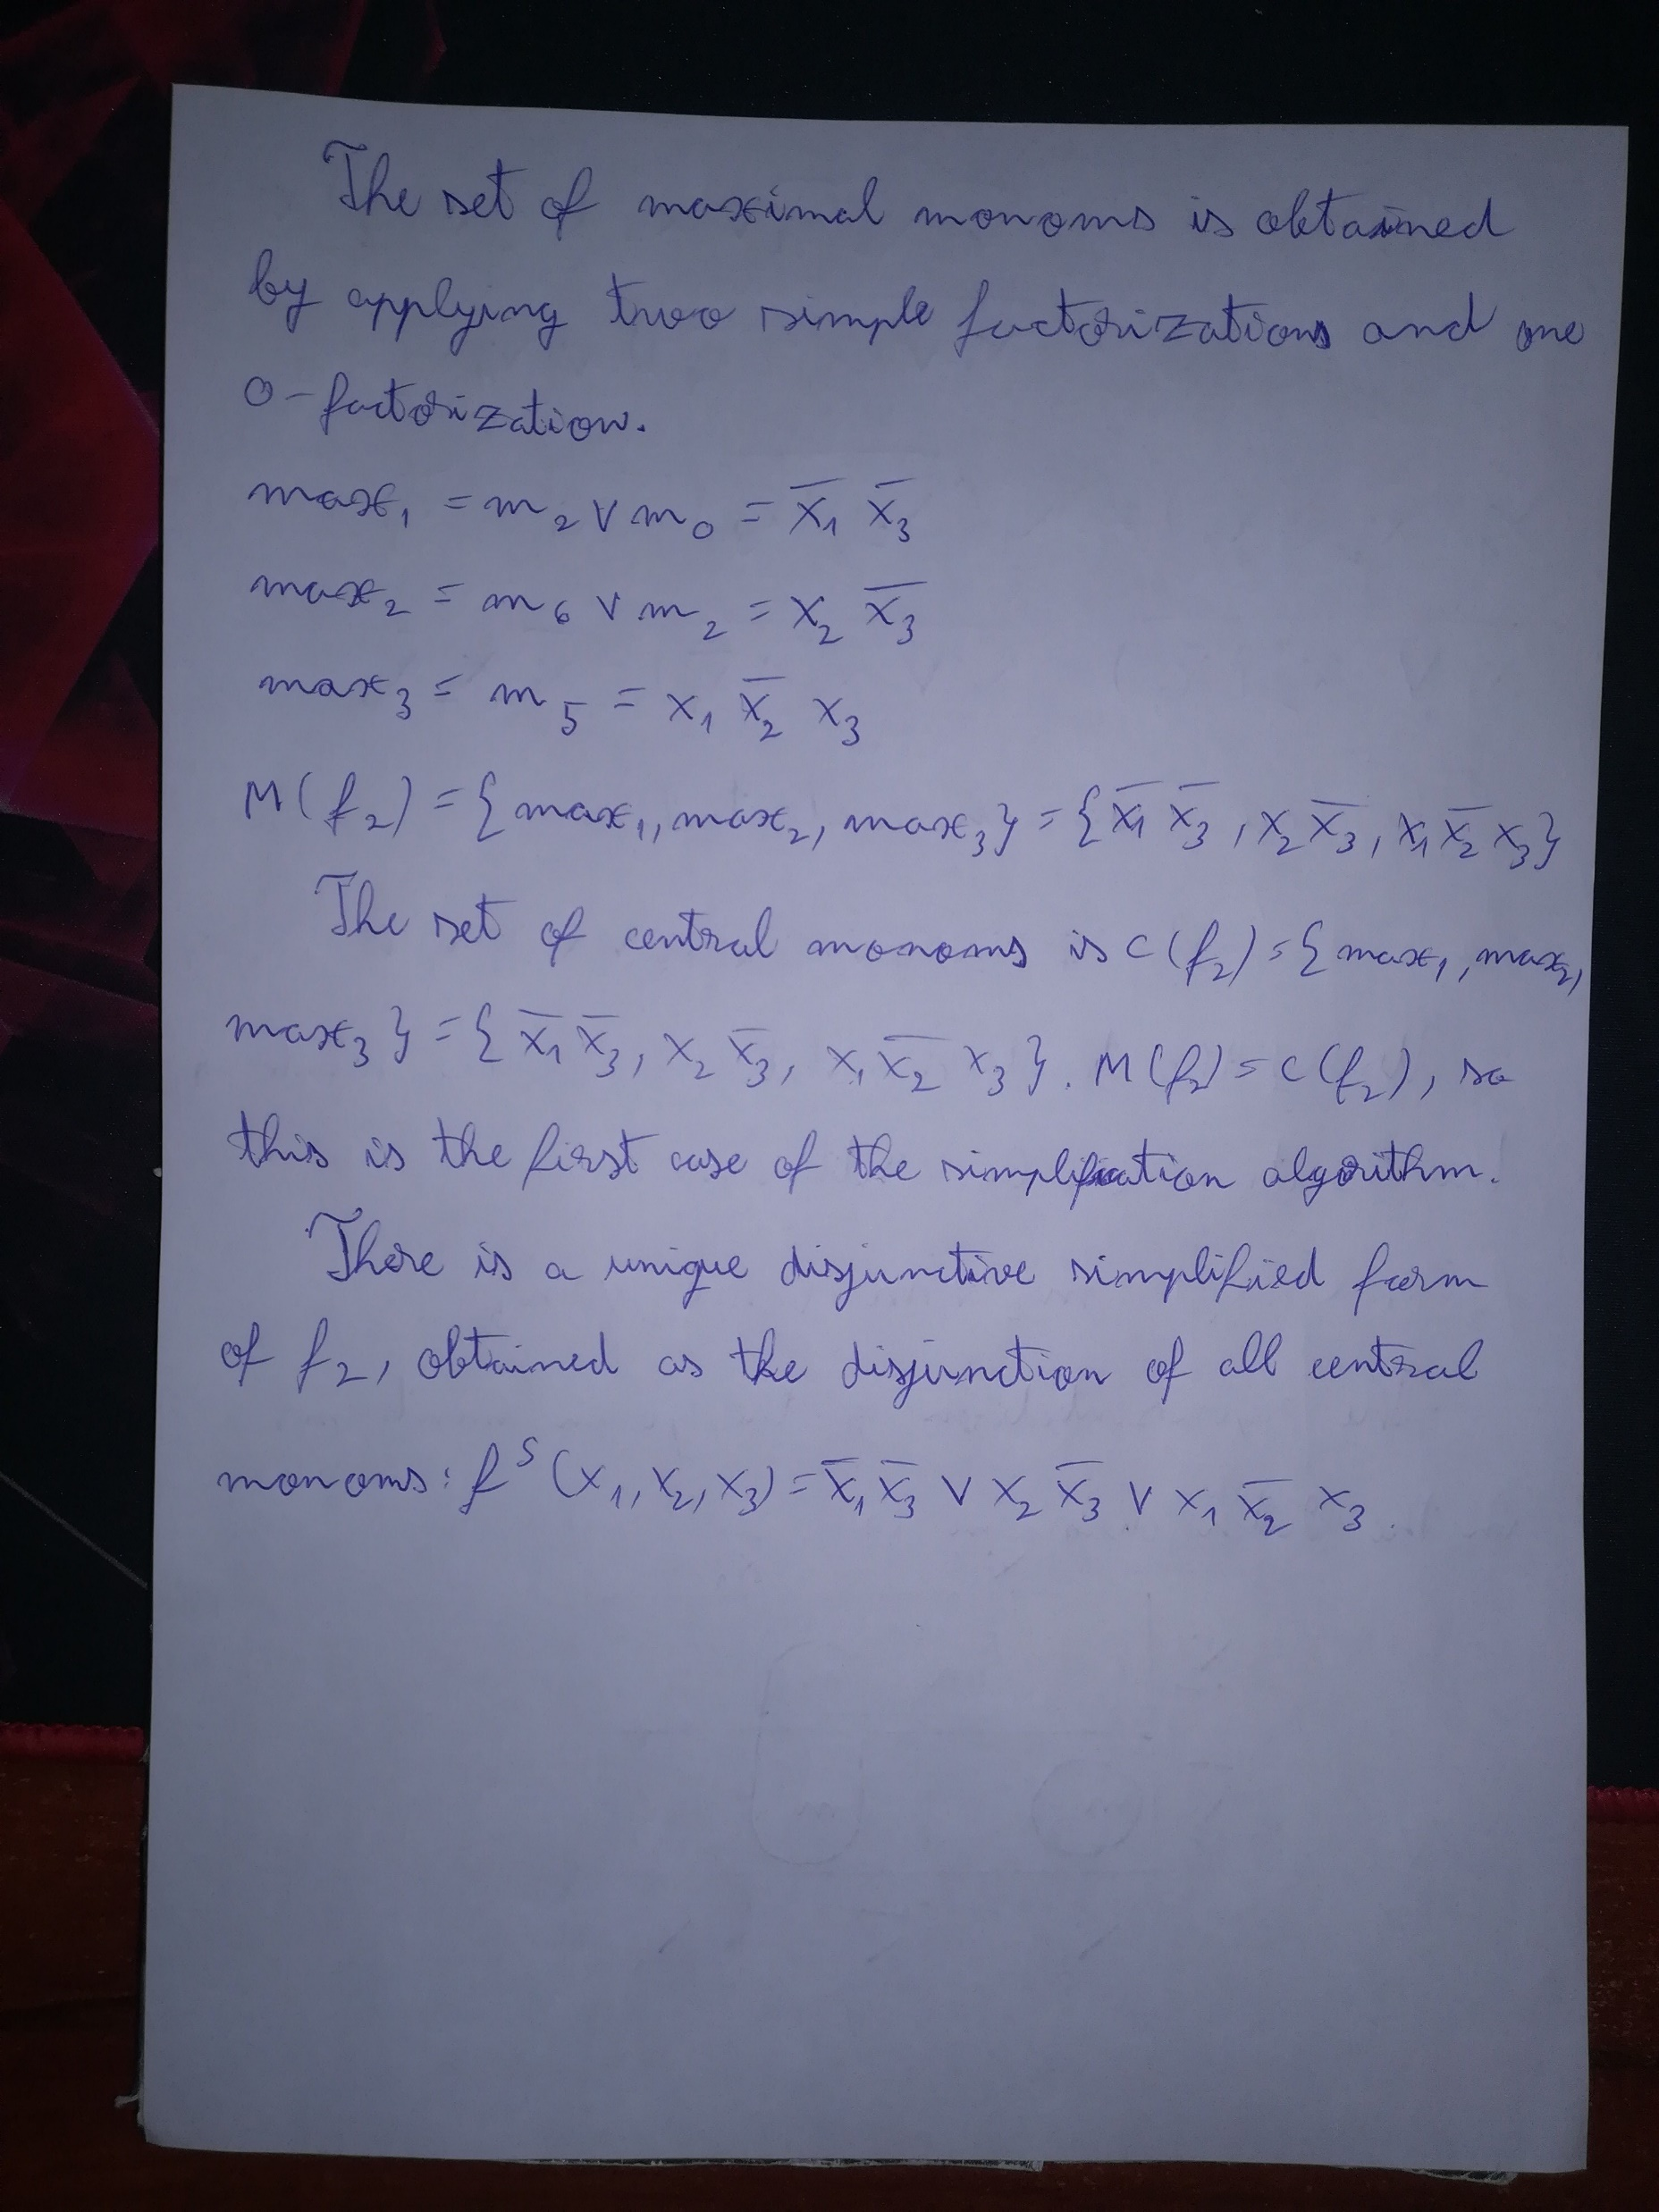 The set of maximal monoms is obtained
by applying two simple factorizations and one
0-factorization.
max₁ = m₂ ∨ m₀ = x̅₁ x̅₃
max₂ = m₆ ∨ m₂ = x₂ x̅₃
max₃ = m₅ = x₁ x̅₂ x₃
M(f₂) = {max₁, max₂, max₃} = {x̅₁ x̅₃, x₂ x̅₃, x₁ x̅₂ x₃}
The set of central monoms is C(f₂) = {max₁, max₂,
max₃} = {x̅₁ x̅₃, x₂ x̅₃, x₁ x̅₂ x₃}. M(f₂) = C(f₂), so
this is the first case of the simplification algorithm.
There is a unique disjunctive simplified form
of f₂, obtained as the disjunction of all central
monoms: fˢ(x₁, x₂, x₃) = x̅₁ x̅₃ ∨ x₂ x̅₃ ∨ x₁ x̅₂ x₃.